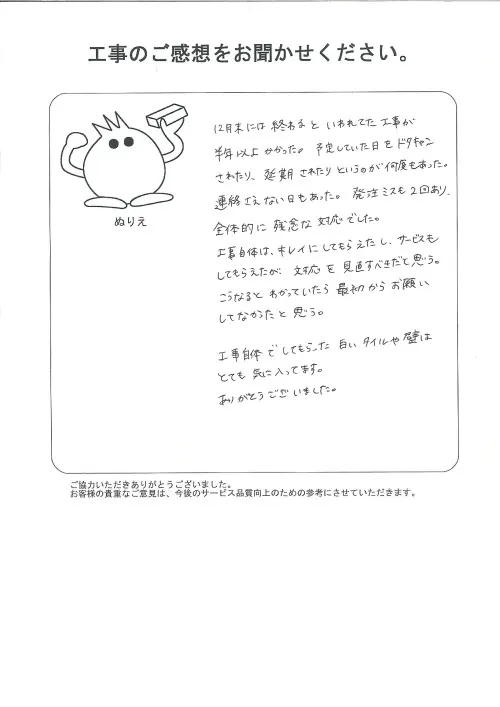 工事のご感想をお聞かせください。
ぬりえ
12月末には終わると いわれてた工事が
半年以上かかった。予定していた日をドタキャン
されたり、延期されたりというのが何度もあった。
連絡さえない日もあった。発注ミスも2回あり、
全体的に残念な対応でした。
工事自体は、キレイにしてもらえたし、サービスも
してもらえたが 対応を見直すべきだと思う。
こうなるとわかっていたら最初からお願い
してなかったと思う。
工事自体でしてもらった 白いタイルや壁は
とても気に入ってます。
ありがとうございました。
ご協力いただきありがとうございました。
お客様の貴重なご意見は、今後のサービス品質向上のための参考にさせていただきます。